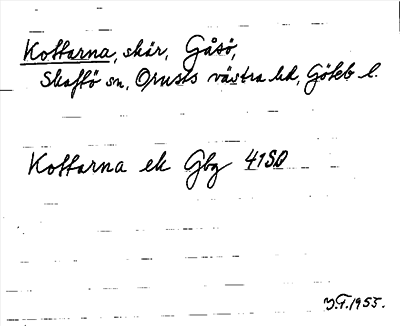 Kottarna, skär, Gåsö,
Skaftö sn, Orusts västra hd, Göteb l.
Kottarna ek Gbg 41SO
1955.